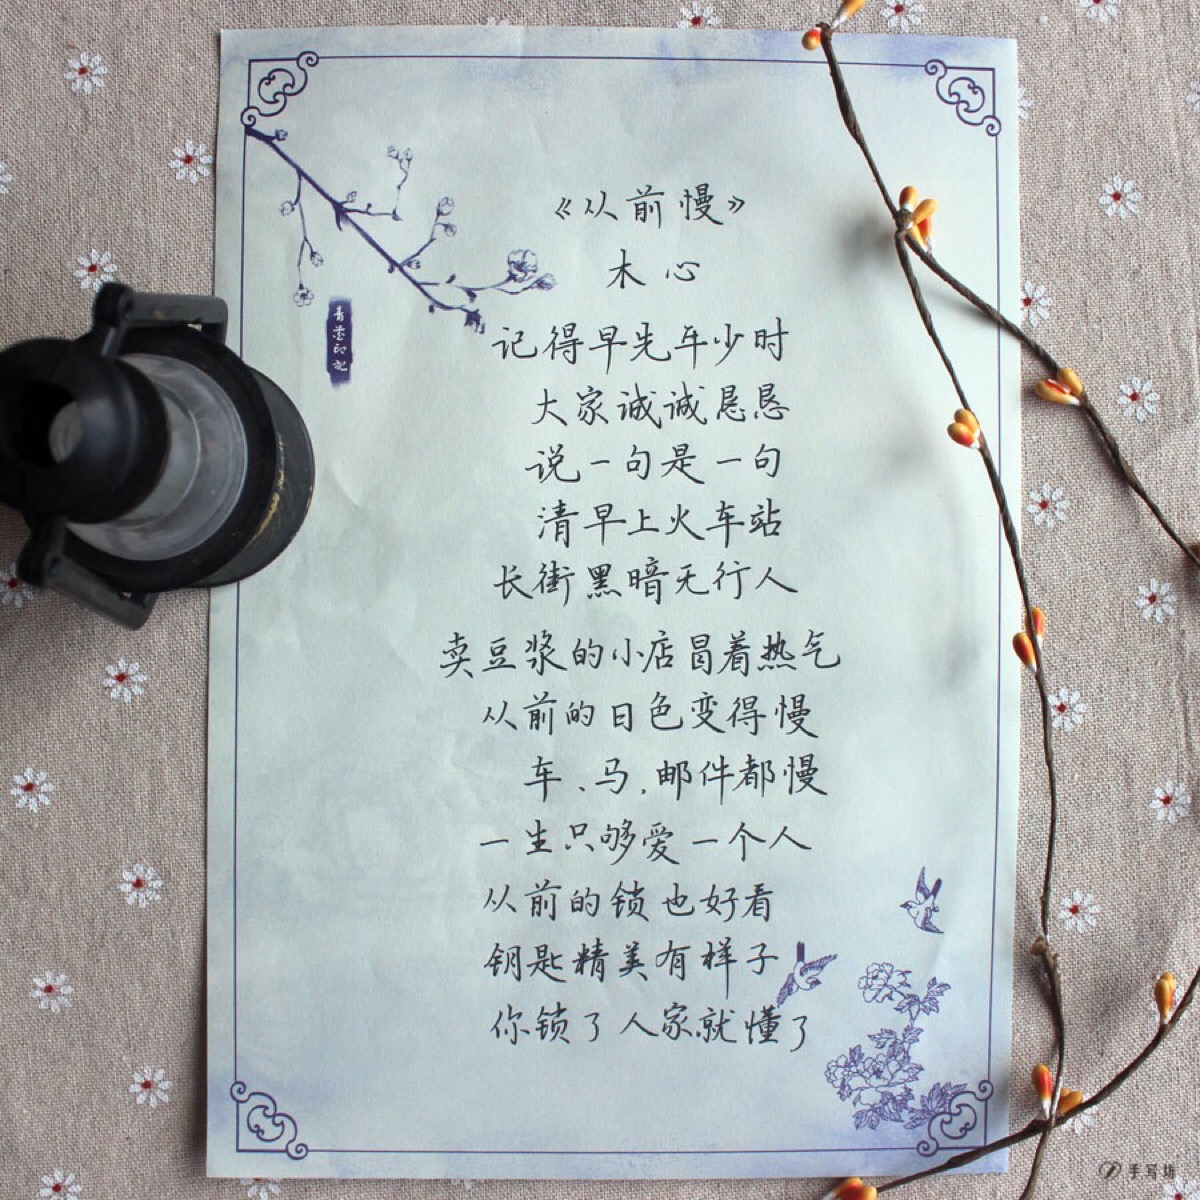 《从前慢》
木心
记得早先年少时
大家诚诚恳恳
说一句是一句
清早上火车站
长街黑暗无行人
卖豆浆的小店冒着热气
从前的日色变得慢
车、马、邮件都慢
一生只够爱一个人
从前的锁也好看
钥匙精美有样子
你锁了人家就懂了
手写坊